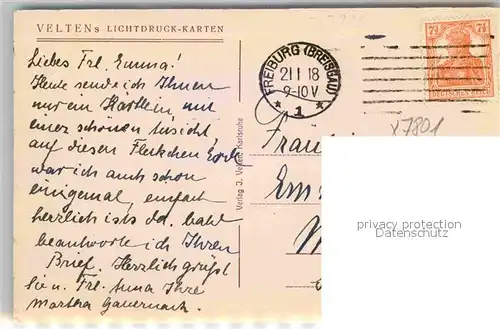 VELTENs LICHTDRUCK-KARTEN
Liebes Frl. Emma!
Heute sende ich Ihnen
nur ein Kärtlein mit
einer schönen Ansicht,
auf diesen Fleckchen Erde
war ich auch schon
einigemal, einfach
herrlich ists da. bald
beantworte ich Ihren
Brief. Herzlich grüßt
Sie u. Frl. Anna Ihre
Martha
Verlag J. Velten, Karlsruhe
FREIBURG (BREISGAU)
21 1 18
9-10 V
* 1 *
7½ 7½
DEUTSCHES REICH
x7801
Fräu
Em
privacy protection
Datenschutz